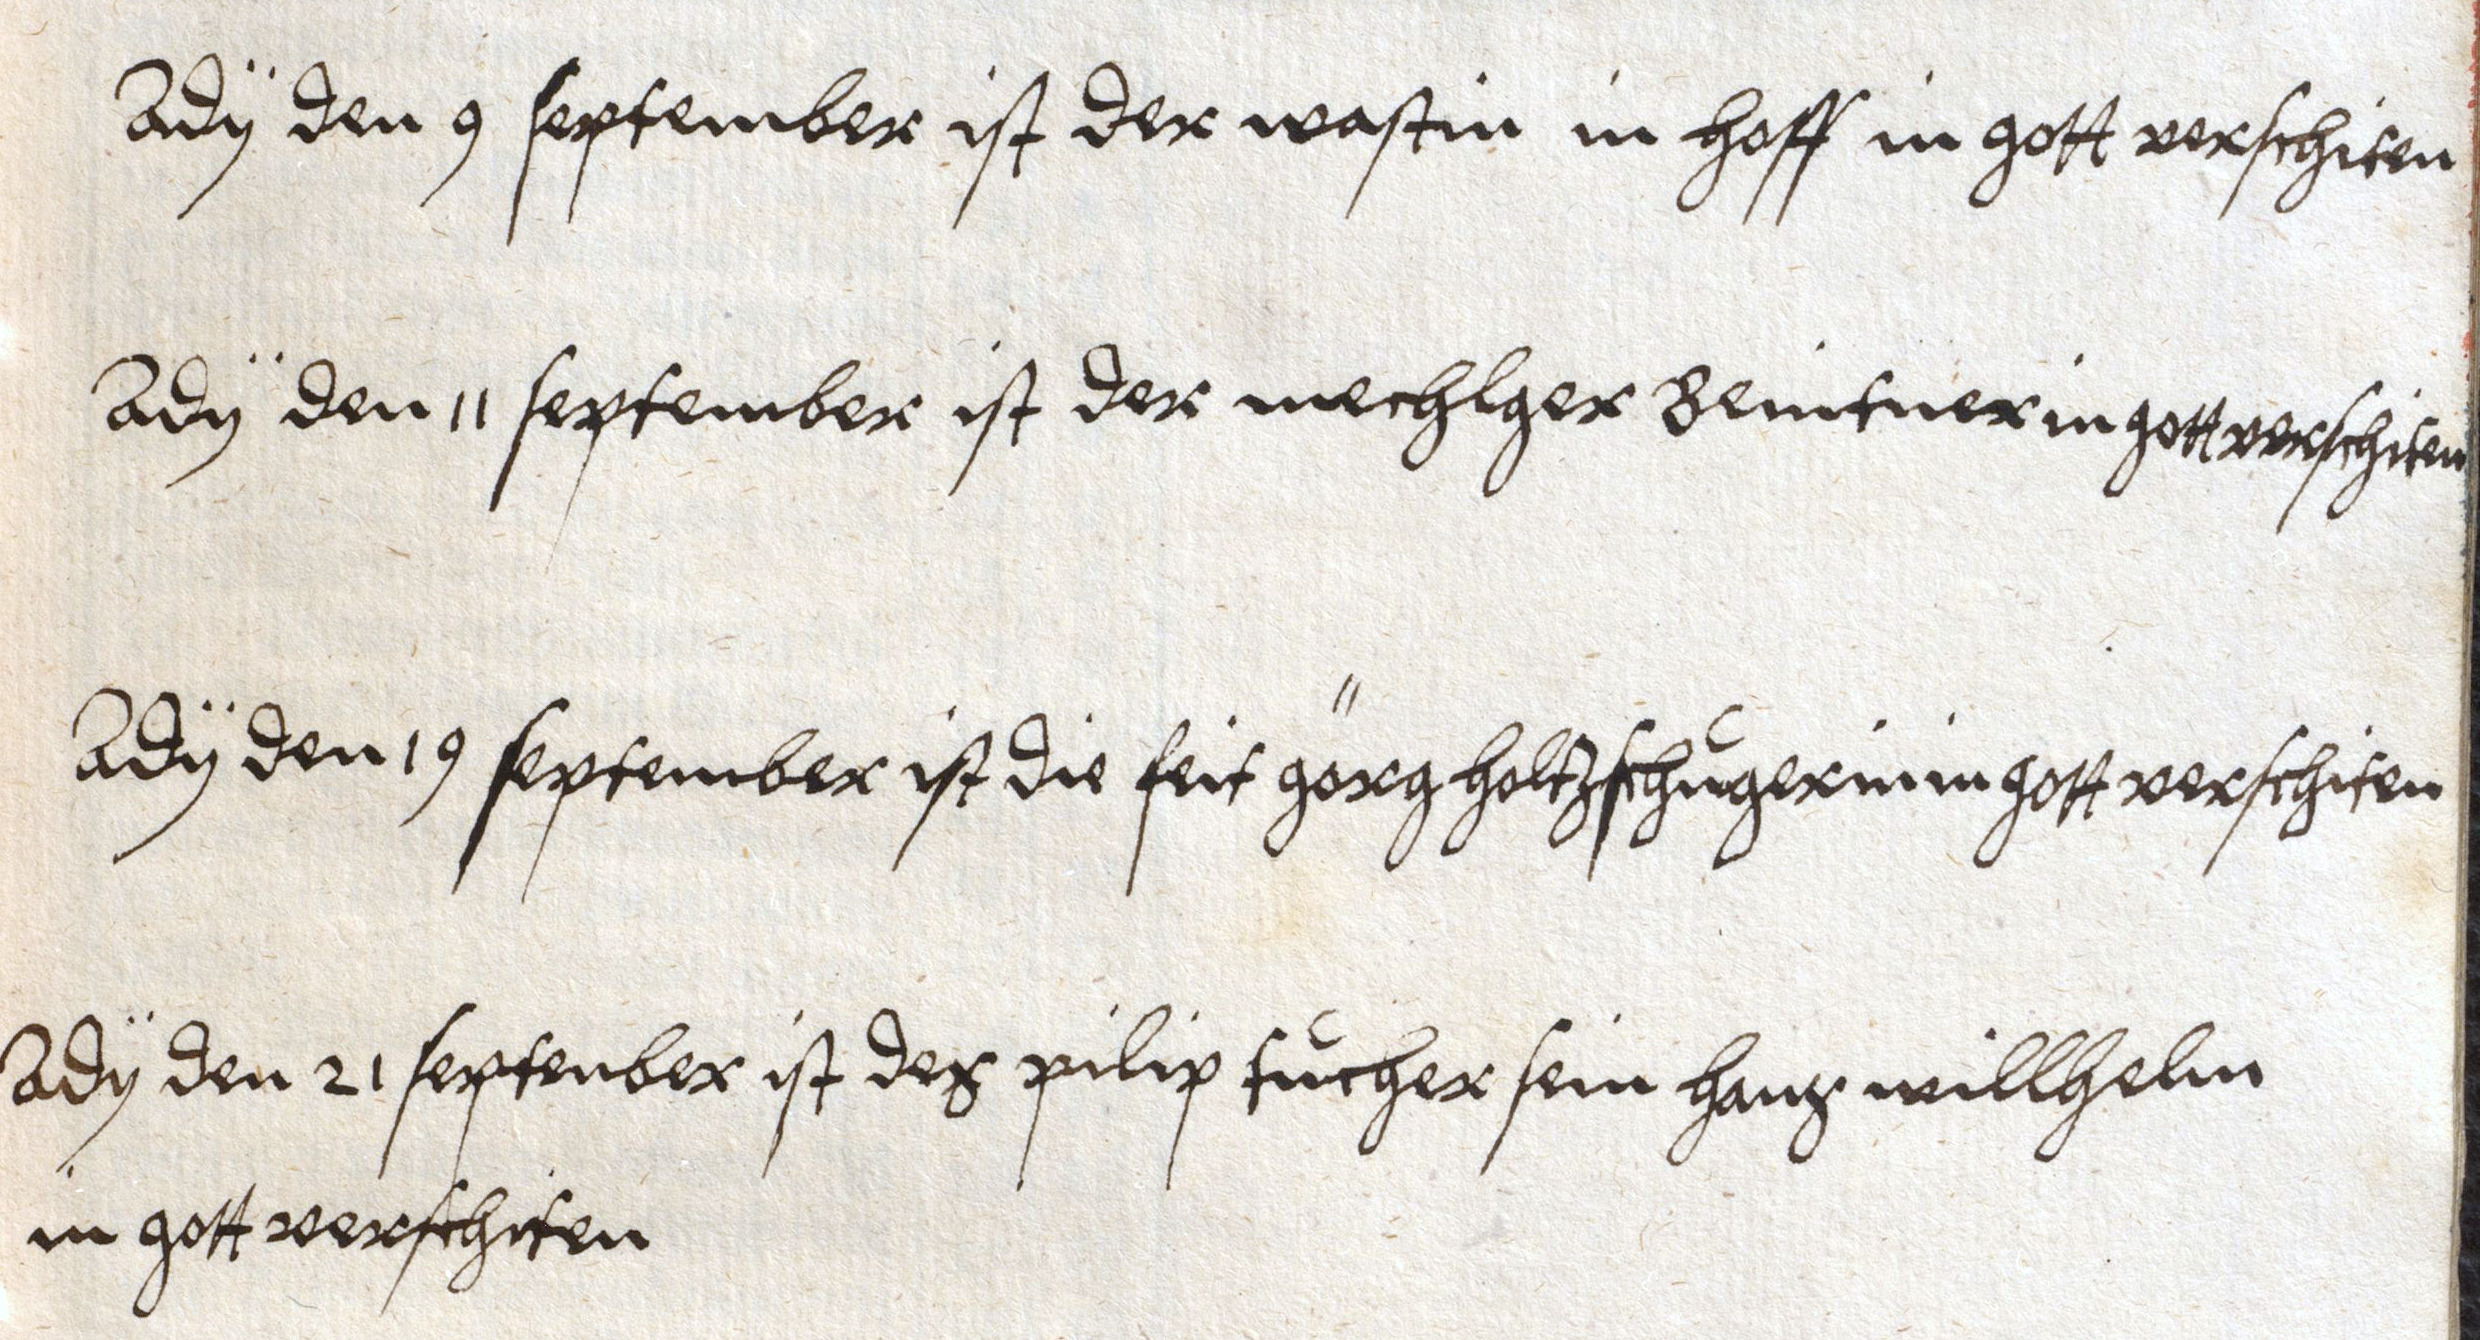 Adÿ den 9 september ist der wastin in hoff in gott verschiten
Adÿ den 11 september ist der mechlger Beintner in gott verschiten
Adÿ den 19 september ist die feit görg holtzschugerin in gott verschiten
Adÿ den 21 septenber ist deß pilip tucher sein hanß willhelm
in gott verschiten